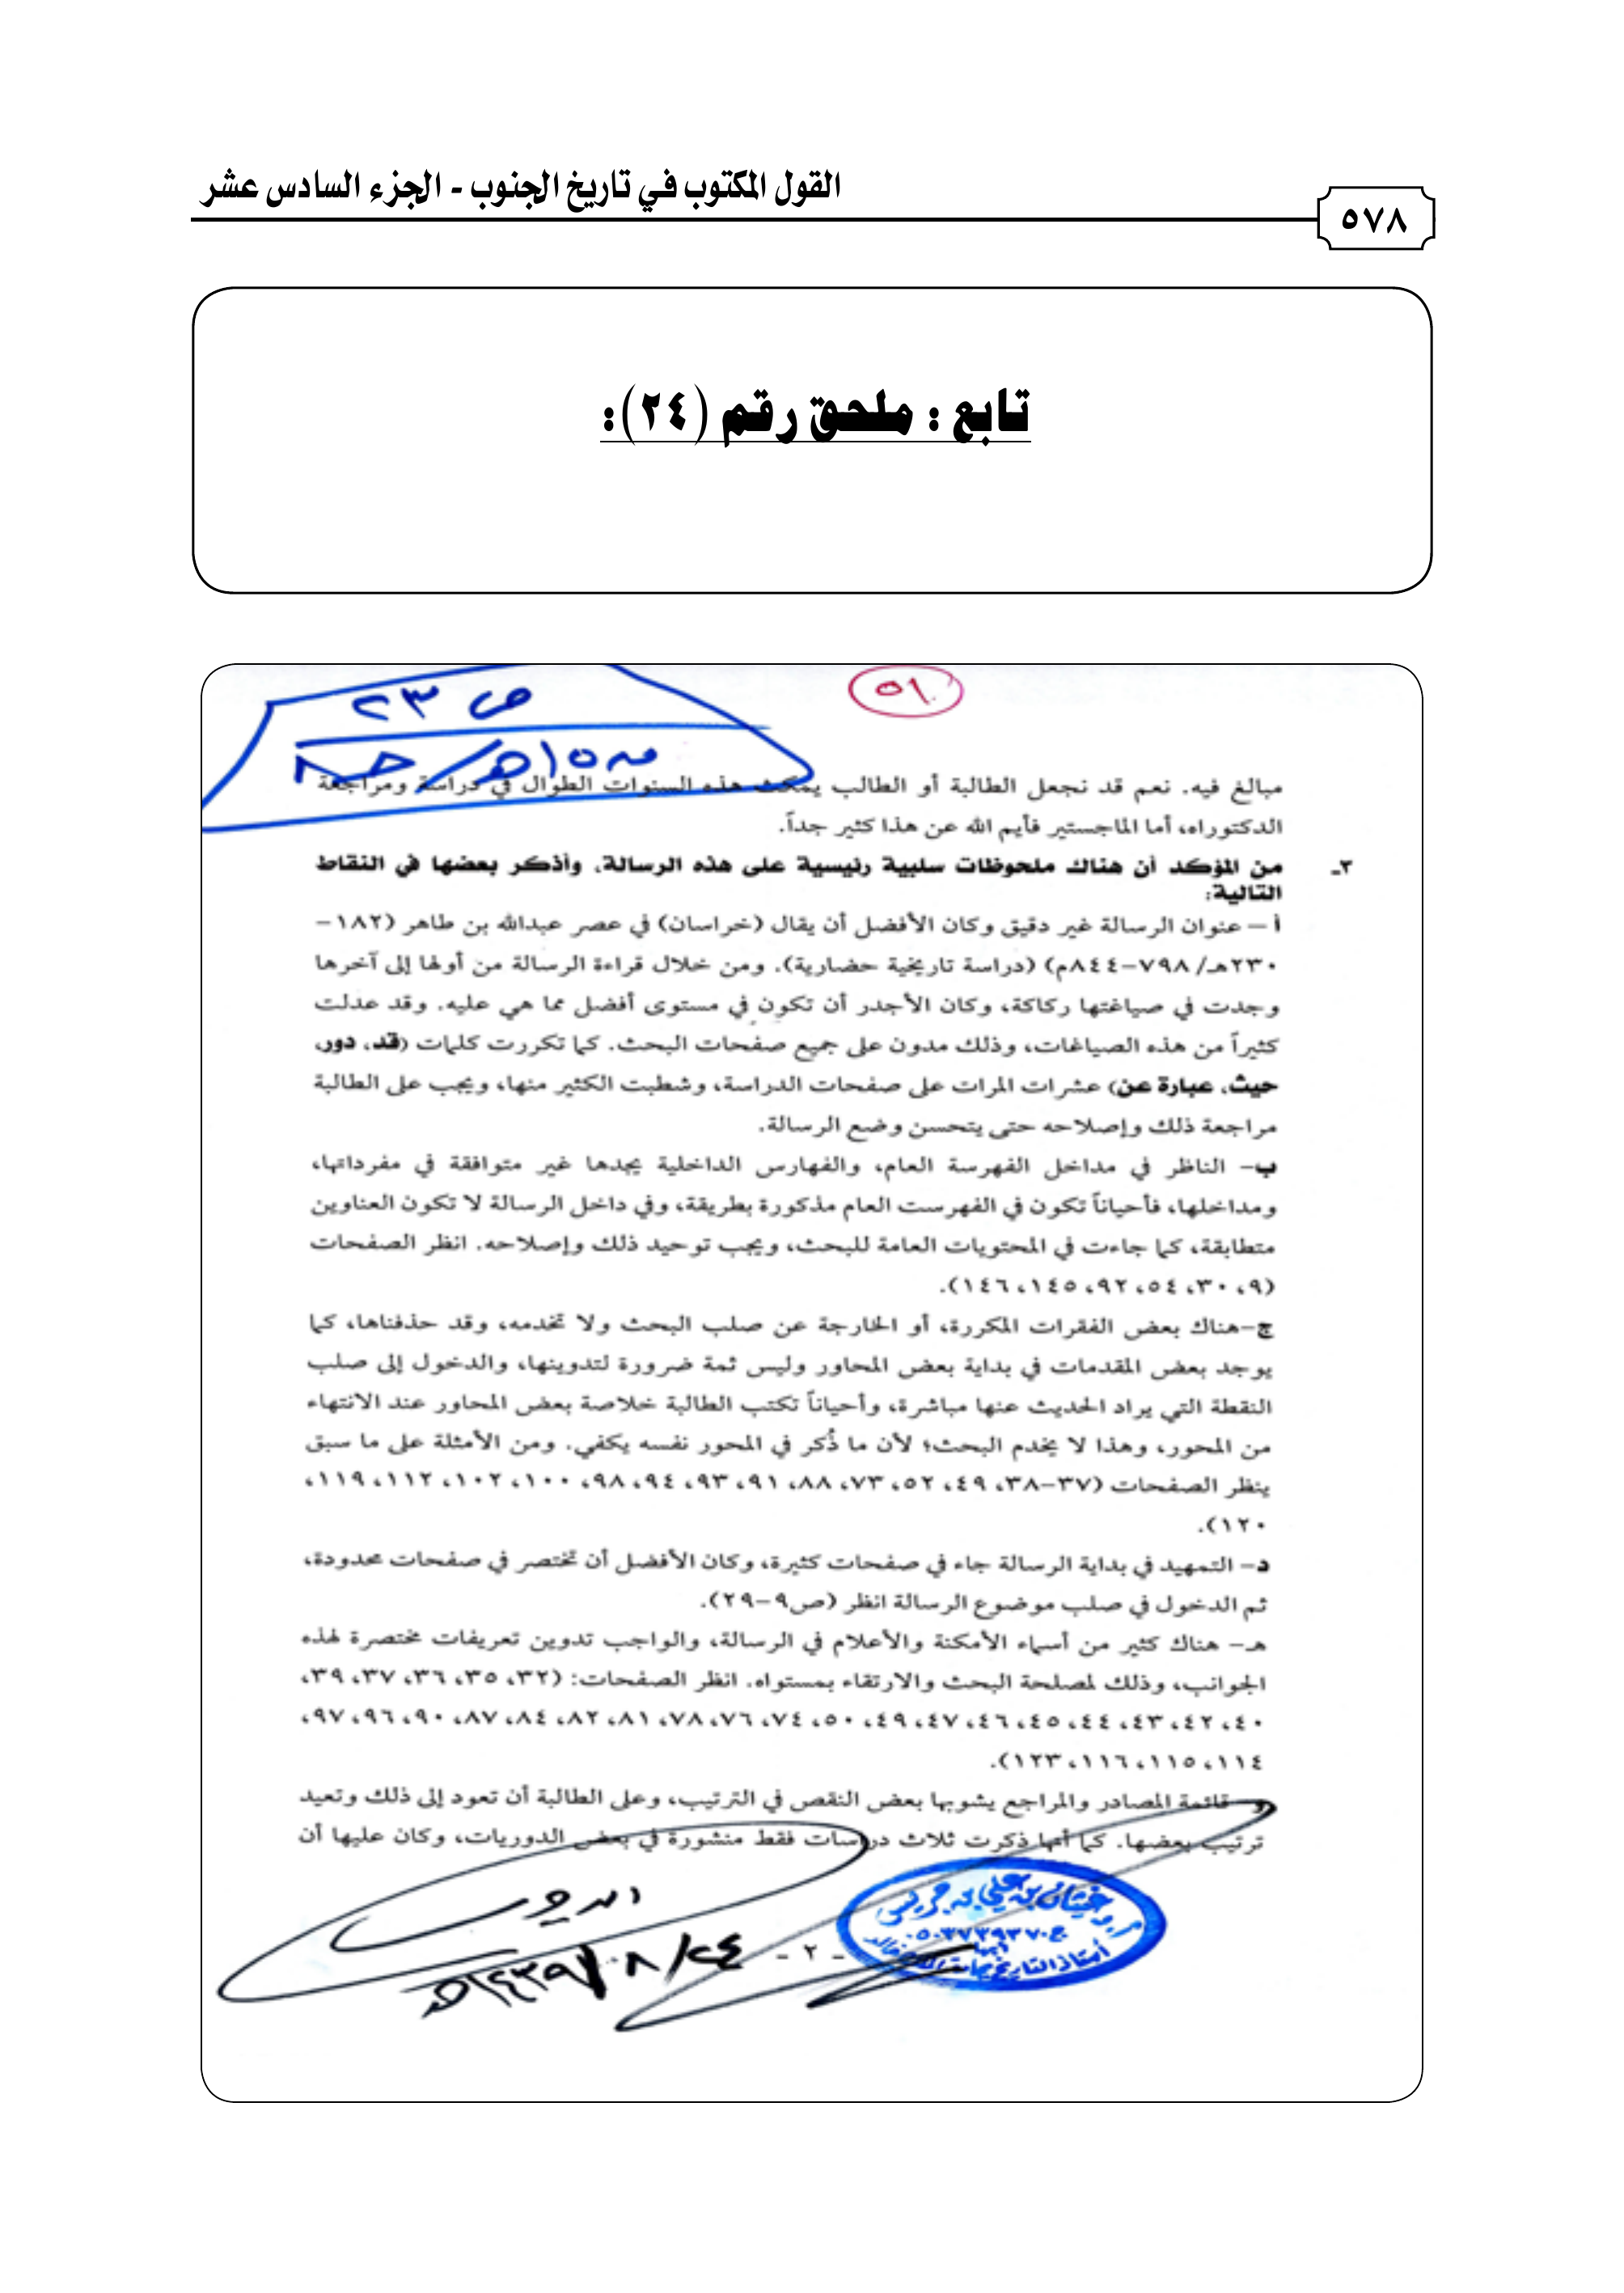 القول المكتوب في تاريخ الجنوب - الجزء السادس عشر
٥٧٨
تابع : ملحق رقم (٢٤):
٥١
ص ٢٣
مبالغ فيه. نعم قد نجعل الطالبة أو الطالب يمكث هذه السنوات الطوال في دراسة ومراجعة
الدكتوراه، أما الماجستير فأيم الله عن هذا كثير جداً.
٣- من المؤكد أن هناك ملحوظات سلبية رئيسية على هذه الرسالة، وأذكر بعضها في النقاط
التالية:
أ – عنوان الرسالة غير دقيق وكان الأفضل أن يقال (خراسان) في عصر عبدالله بن طاهر (١٨٢-
٢٣٠هـ/ ٧٩٨-٨٤٤م) (دراسة تاريخية حضارية). ومن خلال قراءة الرسالة من أولها إلى آخرها
وجدت في صياغتها ركاكة، وكان الأجدر أن تكون في مستوى أفضل مما هي عليه. وقد عدلت
كثيراً من هذه الصياغات، وذلك مدون على جميع صفحات البحث. كما تكررت كلمات (قد، دور،
حيث، عبارة عن) عشرات المرات على صفحات الدراسة، وشطبت الكثير منها، ويجب على الطالبة
مراجعة ذلك وإصلاحه حتى يتحسن وضع الرسالة.
ب- الناظر في مداخل الفهرسة العام، والفهارس الداخلية يجدها غير متوافقة في مفرداتها،
ومداخلها، فأحياناً تكون في الفهرست العام مذكورة بطريقة، وفي داخل الرسالة لا تكون العناوين
متطابقة، كما جاءت في المحتويات العامة للبحث، ويجب توحيد ذلك وإصلاحه. انظر الصفحات
(٩، ٣٠، ٥٤، ٩٢، ١٤٥، ١٤٦).
ج-هناك بعض الفقرات المكررة، أو الخارجة عن صلب البحث ولا تخدمه، وقد حذفناها، كما
يوجد بعض المقدمات في بداية بعض المحاور وليس ثمة ضرورة لتدوينها، والدخول إلى صلب
النقطة التي يراد الحديث عنها مباشرة، وأحياناً تكتب الطالبة خلاصة بعض المحاور عند الانتهاء
من المحور، وهذا لا يخدم البحث؛ لأن ما ذُكر في المحور نفسه يكفي. ومن الأمثلة على ما سبق
ينظر الصفحات (٣٧-٣٨، ٤٩، ٥٢، ٧٣، ٨٨، ٩١، ٩٣، ٩٤، ٩٨، ١٠٠، ١٠٢، ١١٢، ١١٩،
١٢٠).
د- التمهيد في بداية الرسالة جاء في صفحات كثيرة، وكان الأفضل أن تختصر في صفحات محدودة،
ثم الدخول في صلب موضوع الرسالة انظر (ص٩-٢٩).
هـ- هناك كثير من أسماء الأمكنة والأعلام في الرسالة، والواجب تدوين تعريفات مختصرة لهذه
الجوانب، وذلك لمصلحة البحث والارتقاء بمستواه. انظر الصفحات: (٣٢، ٣٥، ٣٦، ٣٧، ٣٩،
٤٠، ٤٢، ٤٣، ٤٤، ٤٥، ٤٦، ٤٧، ٤٩، ٥٠، ٧٤، ٧٦، ٧٨، ٨١، ٨٢، ٨٤، ٨٧، ٩٠، ٩٦، ٩٧،
١١٤، ١١٥، ١١٦، ١٢٣).
و- قائمة المصادر والمراجع يشوبها بعض النقص في الترتيب، وعلى الطالبة أن تعود إلى ذلك وتعيد
ترتيب بعضها. كما أنها ذكرت ثلاث دراسات فقط منشورة في بعض الدوريات، وكان عليها أن
غيثان بن علي بن جريس
- ٢ -
٢٤/٠٨/١٤٣٩هـ